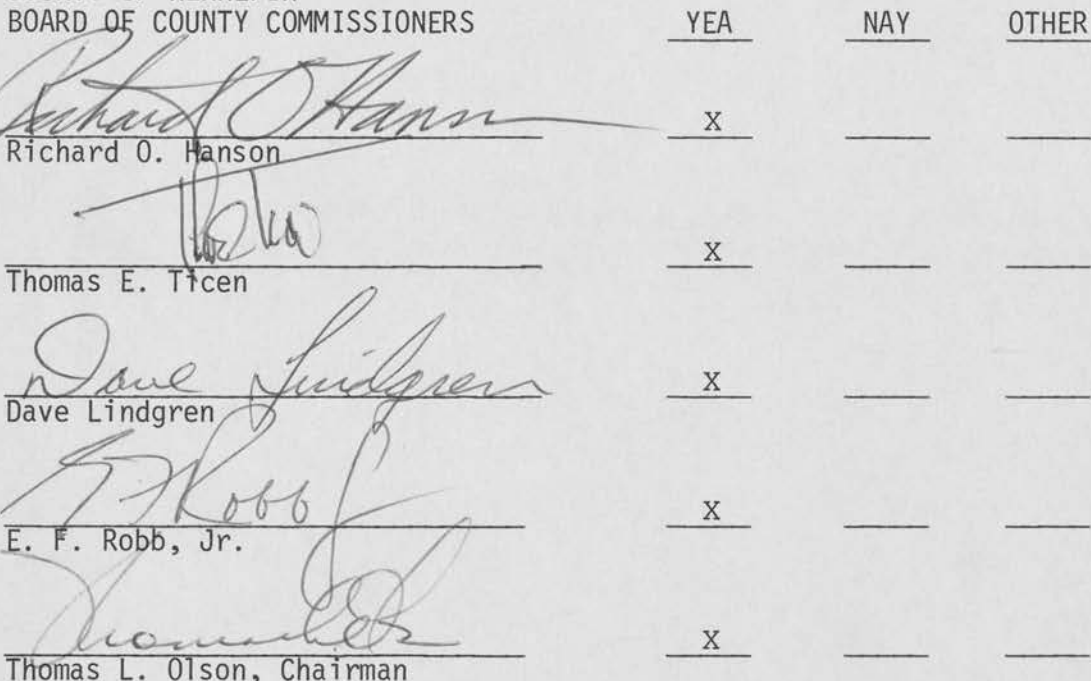 BOARD OF COUNTY COMMISSIONERS YEA NAY OTHER
Richard O Hanson X
Richard O. Hanson
X
Thomas E. Ticen
Dave Lindgren X
Dave Lindgren
E. F. Robb Jr X
E. F. Robb, Jr.
X
Thomas L. Olson, Chairman